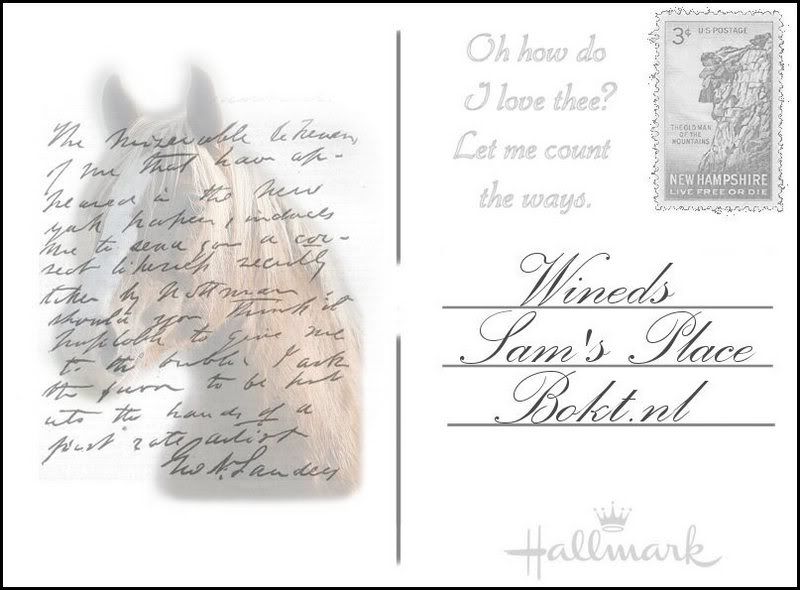 The miserable
of me that have ap-
peared in the New
York papers, induces
me to send you a cor-
rect likeness recently
taken by
should you think it
to give me
to the public I ask
the favor to be put
into the hands of a
first rate artist
Geo N. Sanders
Oh how do
I love thee?
Let me count
the ways.
3¢ U.S. POSTAGE
THE OLD MAN
OF THE
MOUNTAINS
NEW HAMPSHIRE
LIVE FREE OR DIE
Wineds
Sam's Place
Bokt.nl
Hallmark